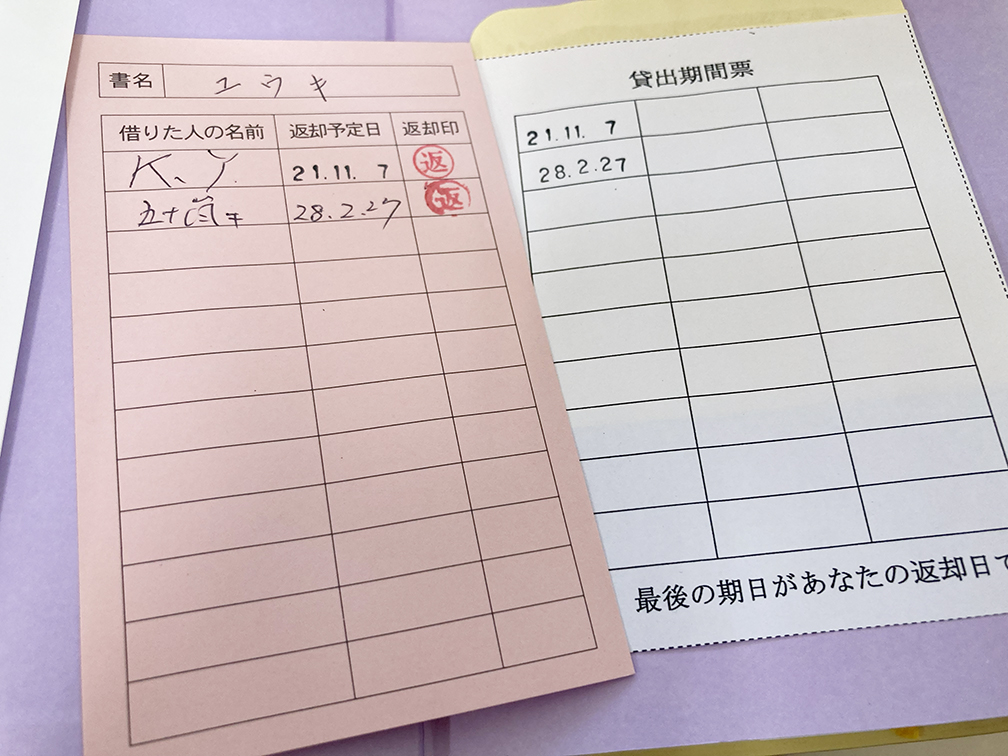 書名 ユウキ
借りた人の名前 返却予定日 返却印
K.Y. 21.11. 7 返
五十嵐 28.2.27 返
貸出期間票
21.11. 7
28.2.27
最後の期日があなたの返却日で